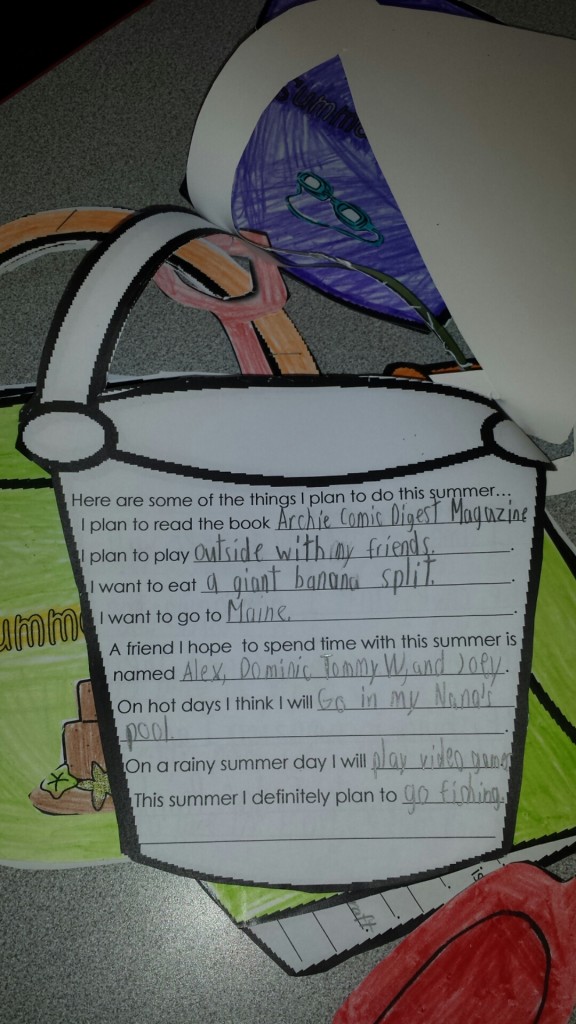 Summ
Here are some of the things I plan to do this summer...
I plan to read the book Archie Comic Digest Magazine
I plan to play outside with my friends.
I want to eat a giant banana split.
I want to go to Maine.
A friend I hope to spend time with this summer is
named Alex, Dominic Tommy W, and Joey.
On hot days I think I will Go in my Nana's
pool.
On a rainy summer day I will play video games
This summer I definitely plan to go fishing.
umm